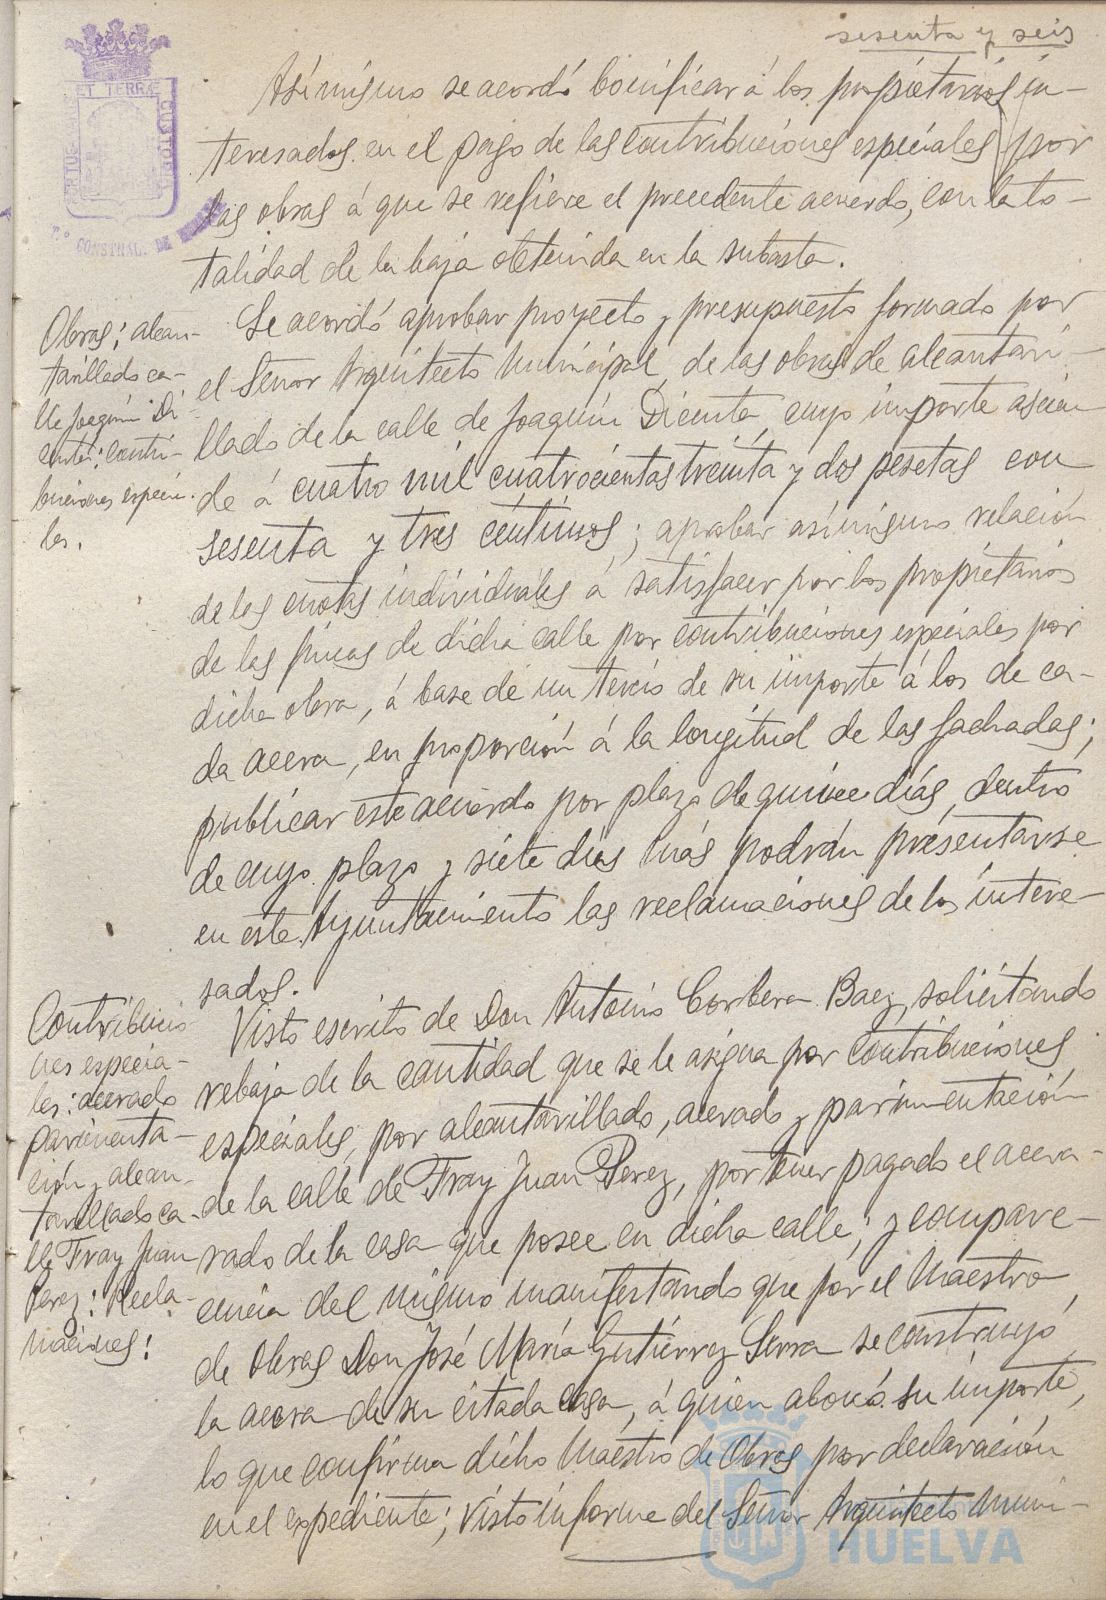 sesenta y seis
Asimismo se acordó bonificar á los propietarios in-
teresados en el pago de las contribuciones especiales por
las obras á que se refiere el precedente acuerdo, con la to-
talidad de la baja obtenida en la subasta.
Obras; alcan-
tarillado ca-
lle Joaquín Di-
centa: contri-
buciones especia-
les.
Se acordó aprobar proyecto y presupuesto formado por
el Señor Arquitecto Municipal, de las obras de alcantari-
llado de la calle de Joaquín Dicenta, cuyo importe ascien
de á cuatro mil cuatrocientas treinta y dos pesetas con
sesenta y tres céntimos; aprobar asimismo relación
de las cuotas individuales á satisfacer por los propietarios
de las fincas de dicha calle por contribuciones especiales por
dicha obra, á base de un tercio de su importe á los de ca-
da acera, en proporción á la longitud de las fachadas;
publicar este acuerdo por plazo de quince días, dentro
de cuyo plazo y siete días más podrán presentarse
en este Ayuntamiento las reclamaciones de los intere-
sados.
Contribucio
nes especia-
les: acerado
pavimenta-
ción y alcan-
tarillado ca-
lle Fray Juan
Perez: Recla-
maciones:
Visto escrito de Don Antonio Corbera Baez, solicitando
rebaja de la cantidad que se le asigna por contribuciones
especiales, por alcantarillado, acerado y pavimentación
de la calle de Fray Juan Perez, por tener pagado el acera-
rado de la casa que posee en dicha calle; y compare-
cencia del mismo manifestando que por el Maestro
de Obras Don José María Gutiérrez Serra se construyó
la acera de su citada casa, á quien abonó su importe,
lo que confirma dicho Maestro de Obras por declaración
en el expediente; Visto informe del Señor Arquitecto Muni-
ET TERRÆ
CUSTODIA
CONSTNAL. DE
HUELVA